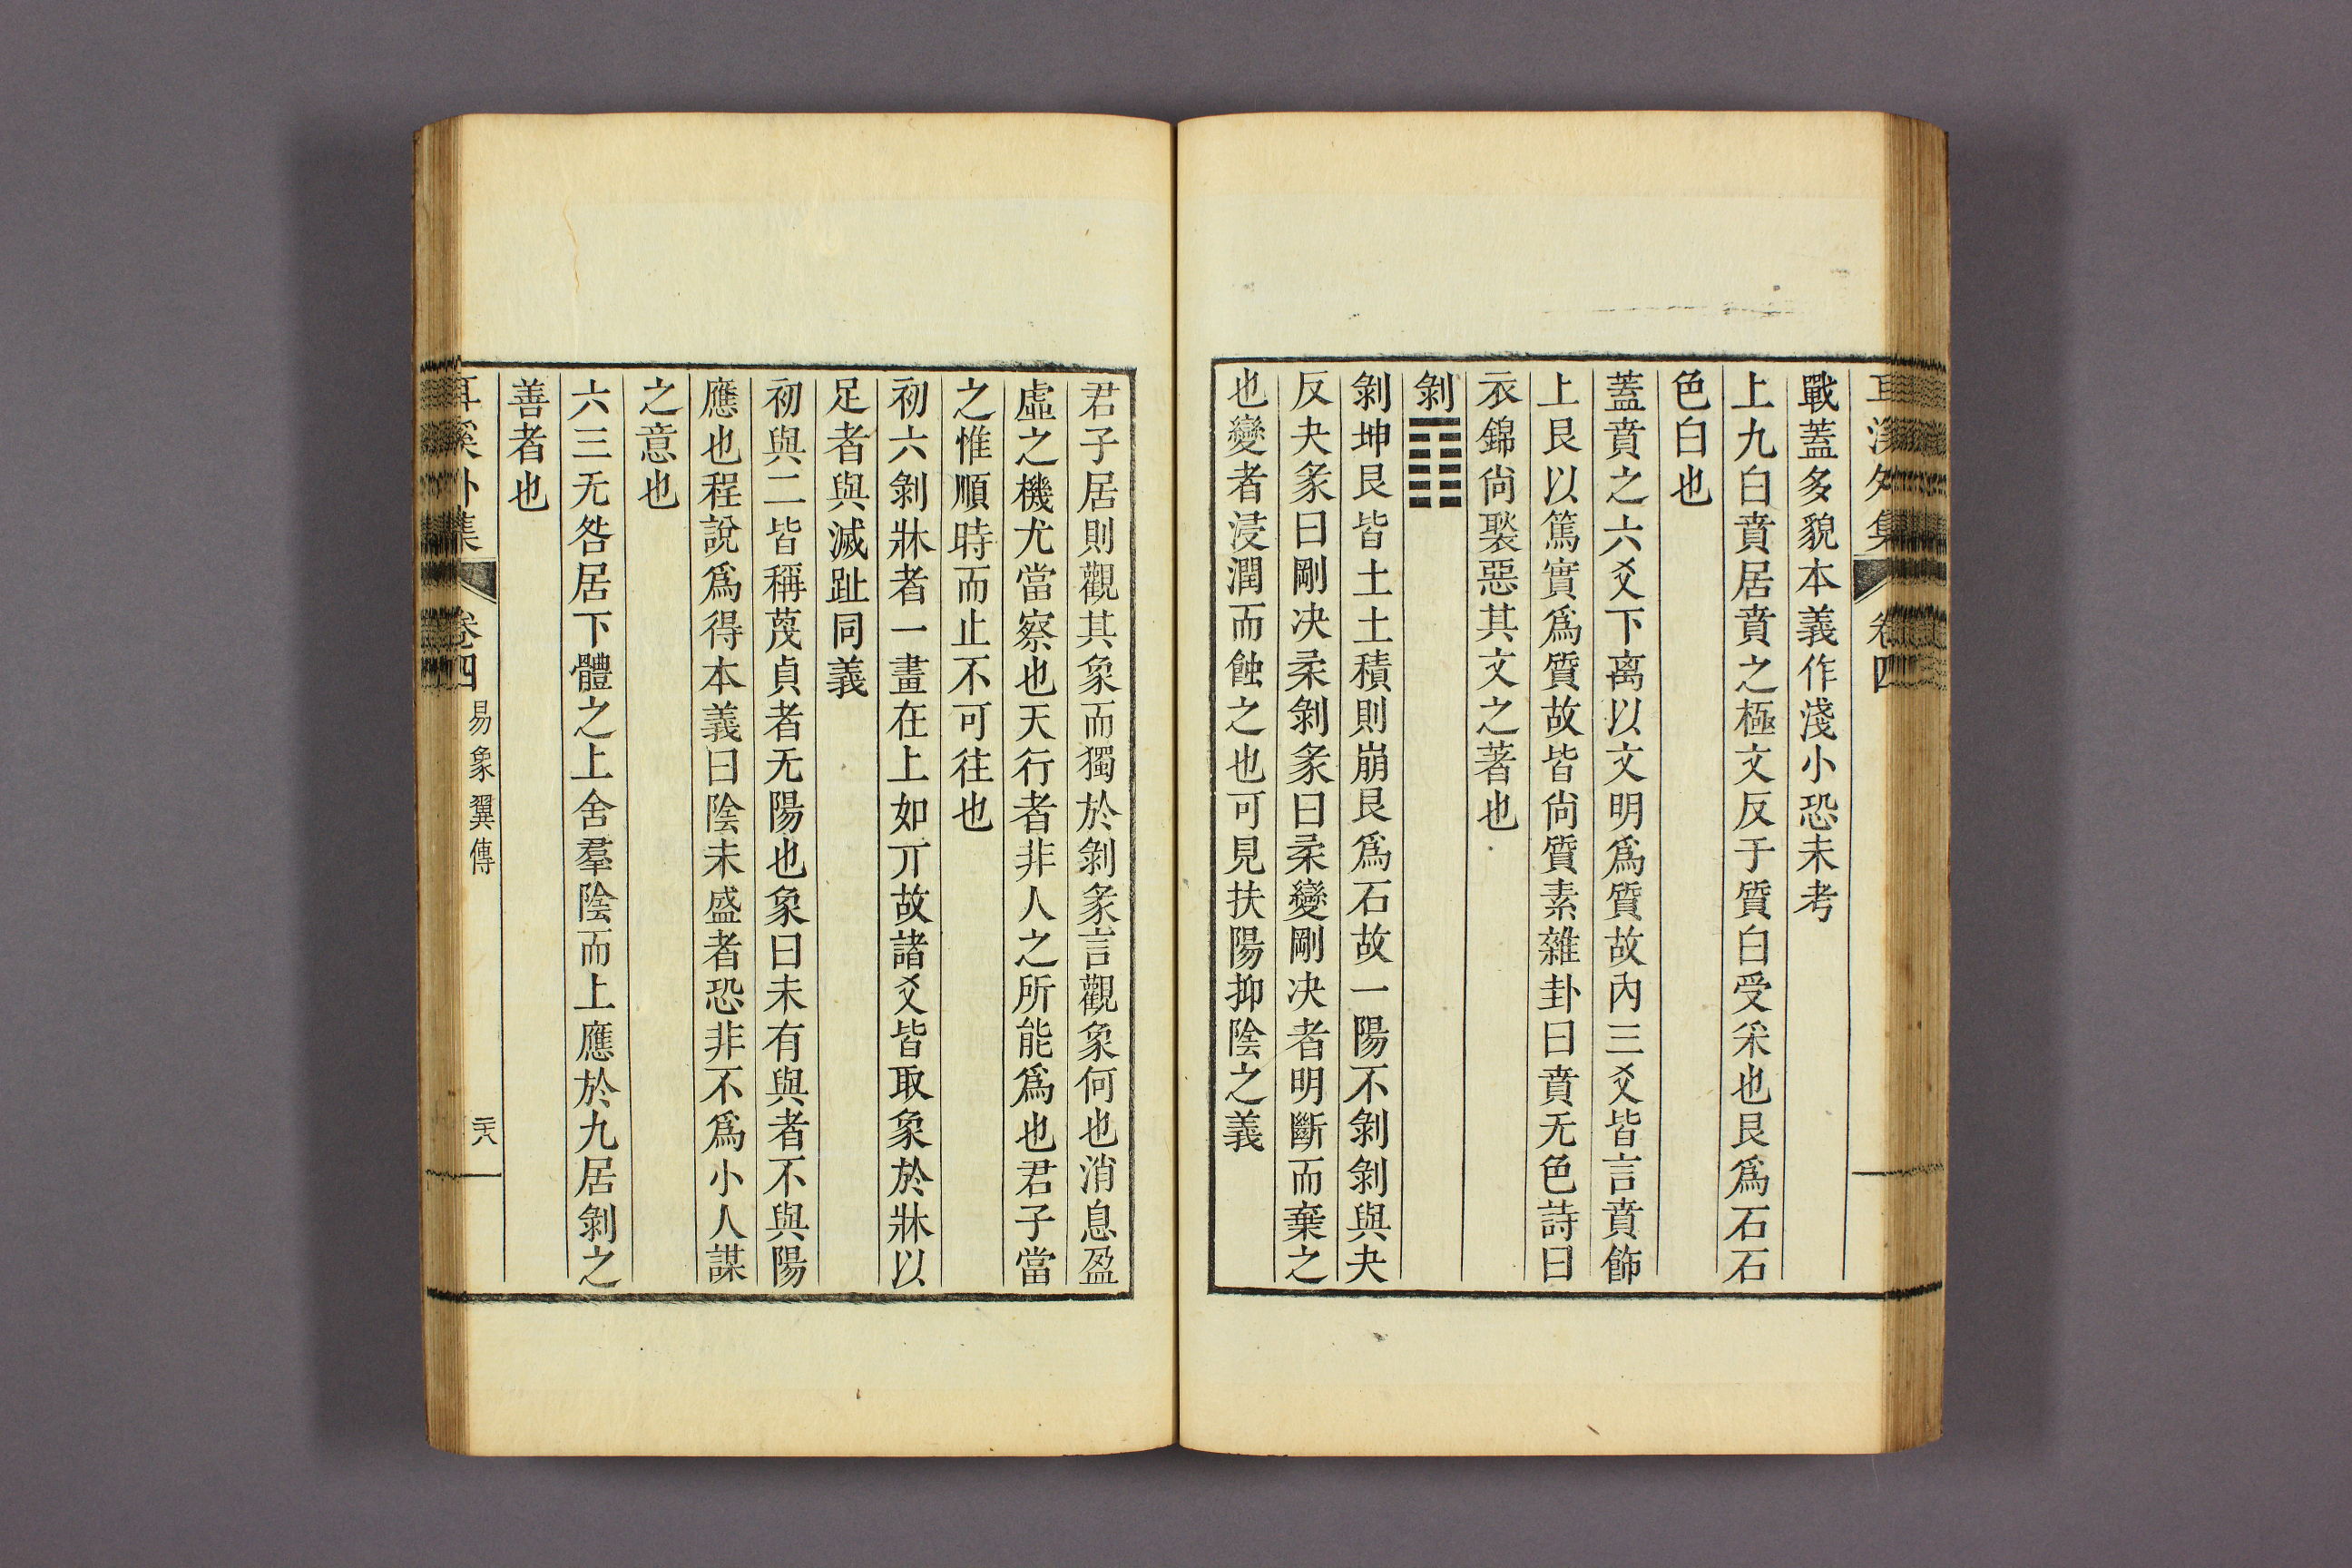 耳溪外集 卷四
戰蓋多貌本義作淺小恐未考
上九白賁居賁之極文反于質白受采也艮爲石石
色白也
蓋賁之六爻下离以文明爲質故內三爻皆言賁飾
上艮以篤實爲質故皆尙質素雜卦曰賁无色詩曰
衣錦尙褧惡其文之著也
剝䷖
剝坤艮皆土土積則崩艮爲石故一陽不剝剝與夬
反夬彖曰剛决柔剝彖曰柔變剛决者明斷而棄之
也變者浸潤而蝕之也可見扶陽抑陰之義
君子居則觀其象而獨於剝彖言觀象何也消息盈
虛之機尤當察也天行者非人之所能爲也君子當
之惟順時而止不可往也
初六剝牀者一畫在上如丌故諸爻皆取象於牀以
足者與滅趾同義
初與二皆稱蔑貞者无陽也象曰未有與者不與陽
應也程說爲得本義曰陰未盛者恐非不爲小人謀
之意也
六三无咎居下體之上舍羣陰而上應於九居剝之
善者也
耳溪外集 卷四 易象翼傳 二十八